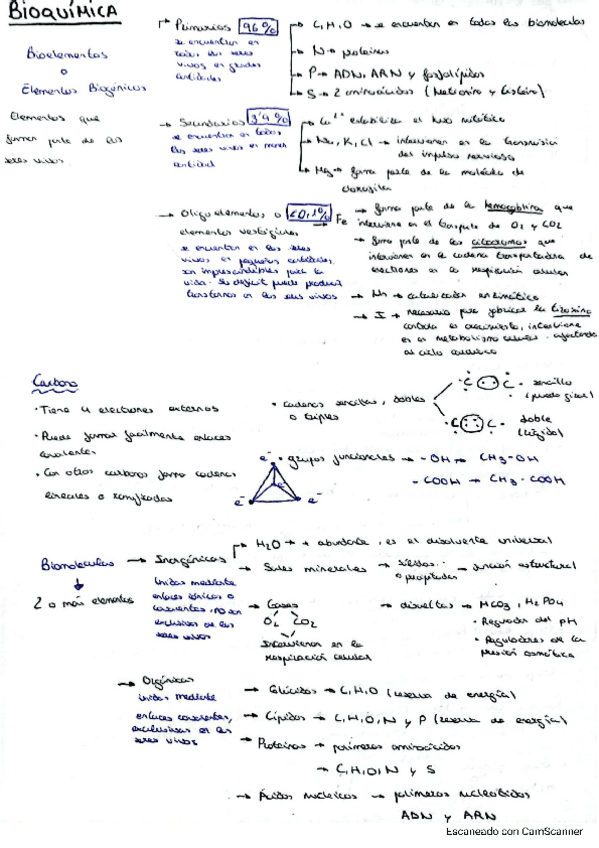 BIOQUÍMICA
Bioelementos
o
Elementos Biogénicos
Elementos que
forman parte de los
seres vivos.
→ Primarios 96%
se encuentran en
todos los seres
vivos en grandes
cantidades
→ C, H, O → se encuentran en todas las biomoleculas
→ N → proteinas
→ P → ADN, ARN y fosfolípidos
→ S → 2 aminoácidos (Metionina y Cisteina)
→ Secundarios 3'9%
se encuentran en todos
los seres vivos en menor
cantidad
→ Ca²⁺ estabiliza el huso mitótico
→ Na, K, Cl → intervienen en la transmisión
del impulso nervioso
→ Mg → forma parte de la molécula de
clorofila
→ Oligoelementos o <0,1%
elementos vestigiales
se encuentran en los seres
vivos en pequeñas cantidades,
son imprescindibles para la
vida. Su déficit puede producir
trastornos en los seres vivos
→ Fe → forma parte de la hemoglobina que
interviene en el transporte de O₂ y CO₂
→ forma parte de los citocromos que
intervienen en la cadena transportadora de
electrones en la respiración celular
→ Mn → catalizador enzimático
→ I → necesario para fabricar la tiroxina
controla el crecimiento, interviene
en el metabolismo celular
Carbono
· Tiene 4 electrones externos
· Puede formar facilmente enlaces
covalentes
· Con otros carbonos forma cadenas
lineales o ramificadas
· cadenas sencillas, dobles
o triples
C C - sencillo
(puede girar)
C C - doble
(rígido)
· grupos funcionales → - OH → CH₃-OH
- COOH → CH₃-COOH
e⁻
e⁻ e⁻
Biomoleculas
2 o más elementos
→ Inorgánicas
Unidas mediante
enlaces iónicos o
covalentes, no son
exclusivas de los
seres vivos
→ H₂O → + abundante, es el disolvente universal
→ Sales minerales → sólidas
o precipitadas → función estructural
→ disueltas → HCO₃, H₂PO₄
· Regulador del pH
· Reguladores de la
presión osmótica
→ Gases
O₂ CO₂
Intervienen en la
respiración celular
→ Orgánicas
Unidas mediante
enlaces covalentes,
exclusivas en los
seres vivos
→ Glúcidos → C, H, O (reserva de energía)
→ Lípidos → C, H, O, N y P (reserva de energía)
→ Proteinas → polímeros aminoácidos
→ C, H, O, N y S
→ Ácidos nucleicos → polímeros nucleótidos
ADN y ARN
Escaneado con CamScanner